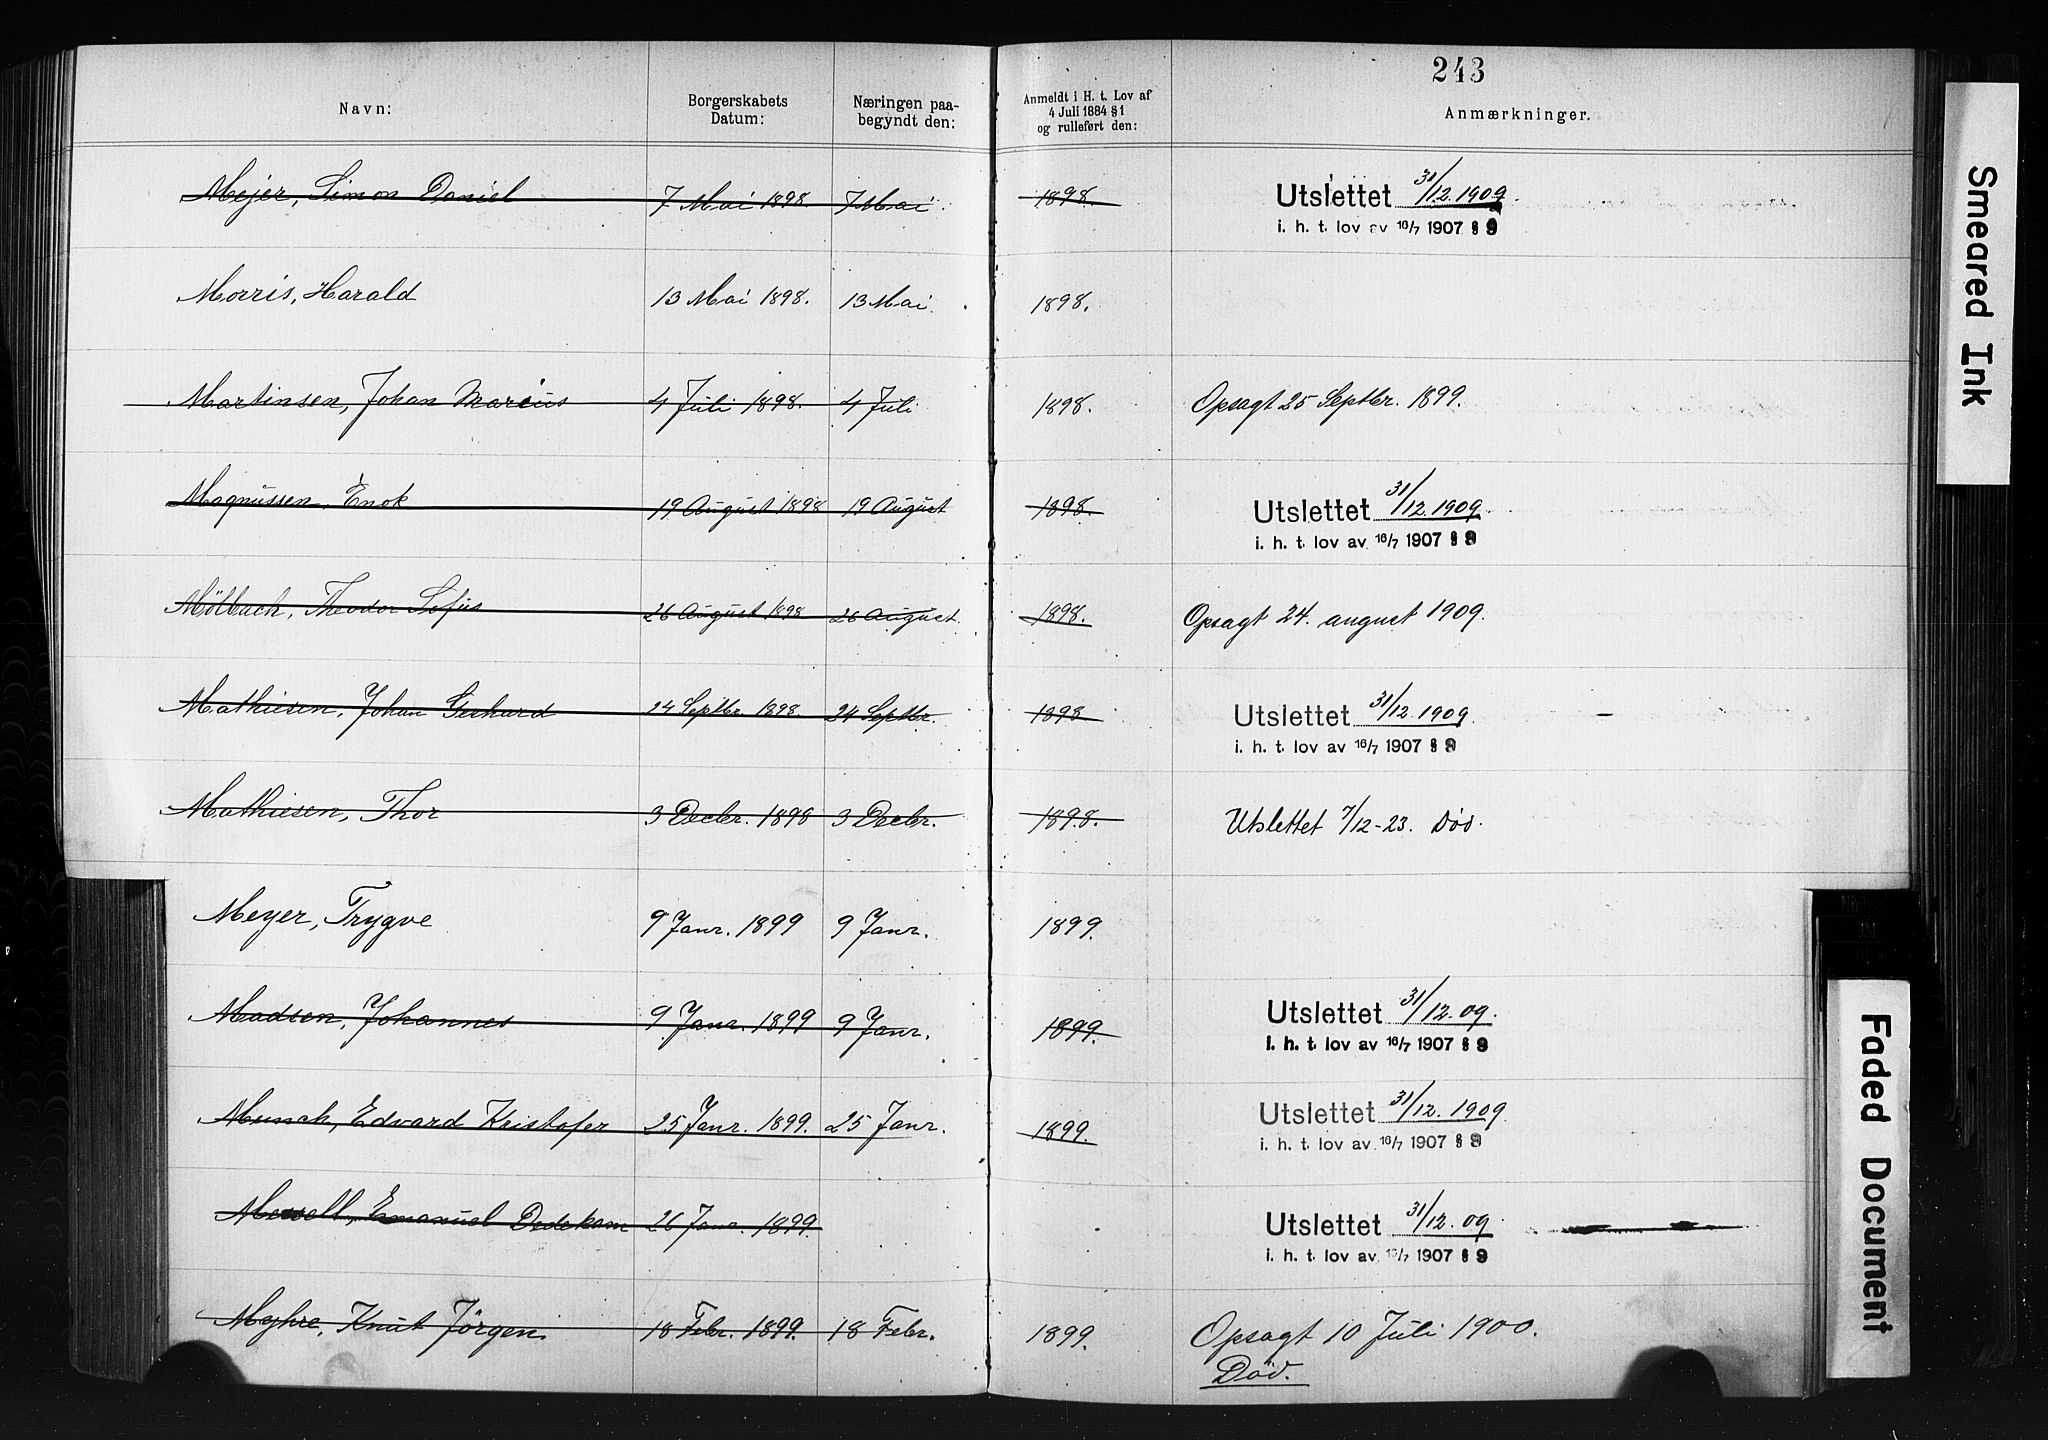 243
Navn:
Borgerskabets Datum:
Næringen paa-begyndt den:
Anmeldt i H. t. Lov af 4 Juli 1884 § 1 og rulleført den:
Anmærkninger.
Mejer, Simon Daniel 7 Mai 1898 7 Mai. 1898. Utslettet 31/12. 1909.
i. h. t. lov av 16/7 1907 § 9
Morris, Harald 13 Mai 1898. 13 Mai. 1898.
Martinsen, Johan Marius 4 Juli 1898. 4 Juli 1898. Opsagt 25 Septbr. 1899.
Magnussen, Enok 19 August 1898 19 August 1898. Utslettet 31/12. 1909.
i. h. t. lov av 16/7 1907 § 9
Mölbach, Theodor Sofus 26 August 1898 26 August. 1898. Opsagt 24. august 1909.
Mathiesen, Johan Gerhard 24 Septbr. 1898. 24 Septbr. 1898 Utslettet 31/12. 1909.
i. h. t. lov av 16/7 1907 § 9
Mathiesen, Thor 3 Decbr. 1898 3 Decbr. 1898. Utslettet 7/12-23. Död.
Meyer, Trygve 9 Janr. 1899 9 Janr. 1899.
Madsen, Johannes 9 Janr. 1899 9 Janr. 1899. Utslettet 31/12. 09.
i. h. t. lov av 16/7 1907 § 9
Munch, Edvard Kristofer 25 Janr. 1899. 25 Janr. 1899. Utslettet 31/12. 1909.
i. h. t. lov av 16/7 1907 § 9
Messell, Emanuel Dedekam 26 Janr. 1899. Utslettet 31/12. 09.
i. h. t. lov av 16/7 1907 § 9
Myhre, Knut Jörgen 18 Febr. 1899. 18 Febr. 1899. Opsagt 10 Juli 1900.
Död.
Smeared Ink
Faded Document